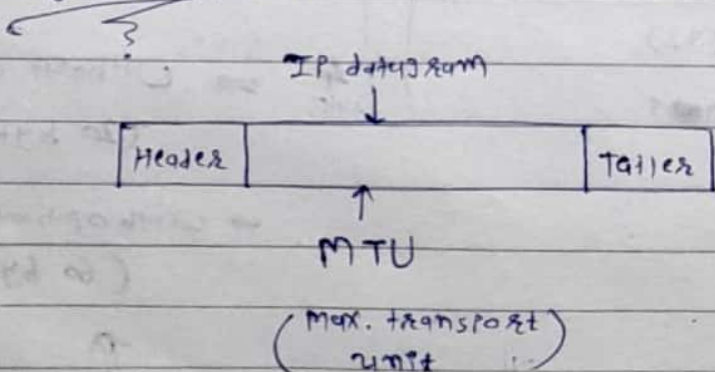 IP datagram
Header
Tailer
MTU
(Max. transport
unit)